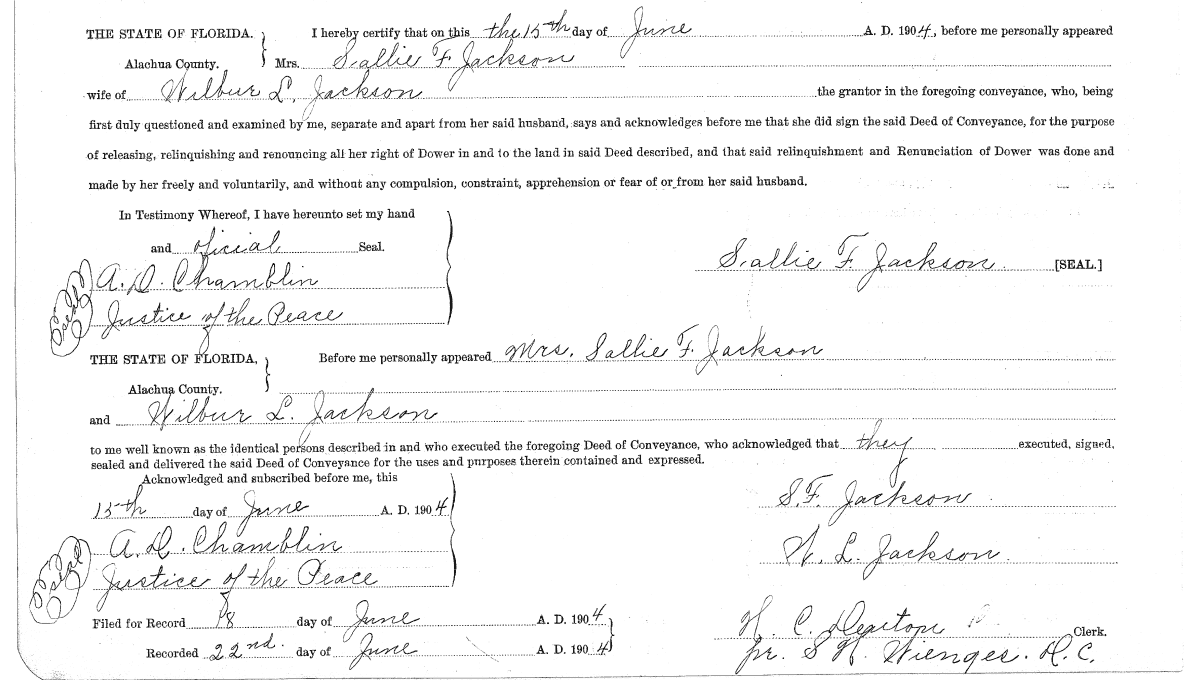 THE STATE OF FLORIDA. I hereby certify that on this the 15th day of June A. D. 1904, before me personally appeared
Alachua County. Mrs. Sallie F. Jackson
wife of Wilbur L. Jackson the grantor in the foregoing conveyance, who, being
first duly questioned and examined by me, separate and apart from her said husband, says and acknowledges before me that she did sign the said Deed of Conveyance, for the purpose
of releasing, relinquishing and renouncing all her right of Dower in and to the land in said Deed described, and that said relinquishment and Renunciation of Dower was done and
made by her freely and voluntarily, and without any compulsion, constraint, apprehension or fear of or from her said husband.
In Testimony Whereof, I have hereunto set my hand
and oficial Seal.
Sallie F. Jackson [SEAL.]
A. D. Chamblin
seal
Justice of the Peace
THE STATE OF FLORIDA, Before me personally appeared Mrs. Sallie F. Jackson
Alachua County.
and Wilbur L. Jackson
to me well known as the identical persons described in and who executed the foregoing Deed of Conveyance, who acknowledged that they executed, signed,
sealed and delivered the said Deed of Conveyance for the uses and purposes therein contained and expressed.
Acknowledged and subscribed before me, this
15th day of June A. D. 1904
S. F. Jackson
A. D. Chamblin
W. L. Jackson
seal
Justice of the Peace
Filed for Record 18 day of June A. D. 1904
H. C. Clerk.
Recorded 22nd. day of June A. D. 1904
pr. S H. Wienges. D. C.